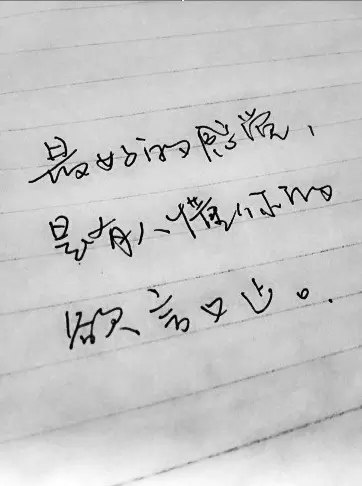 最好的感觉，
是有人懂你的
欲言又止。